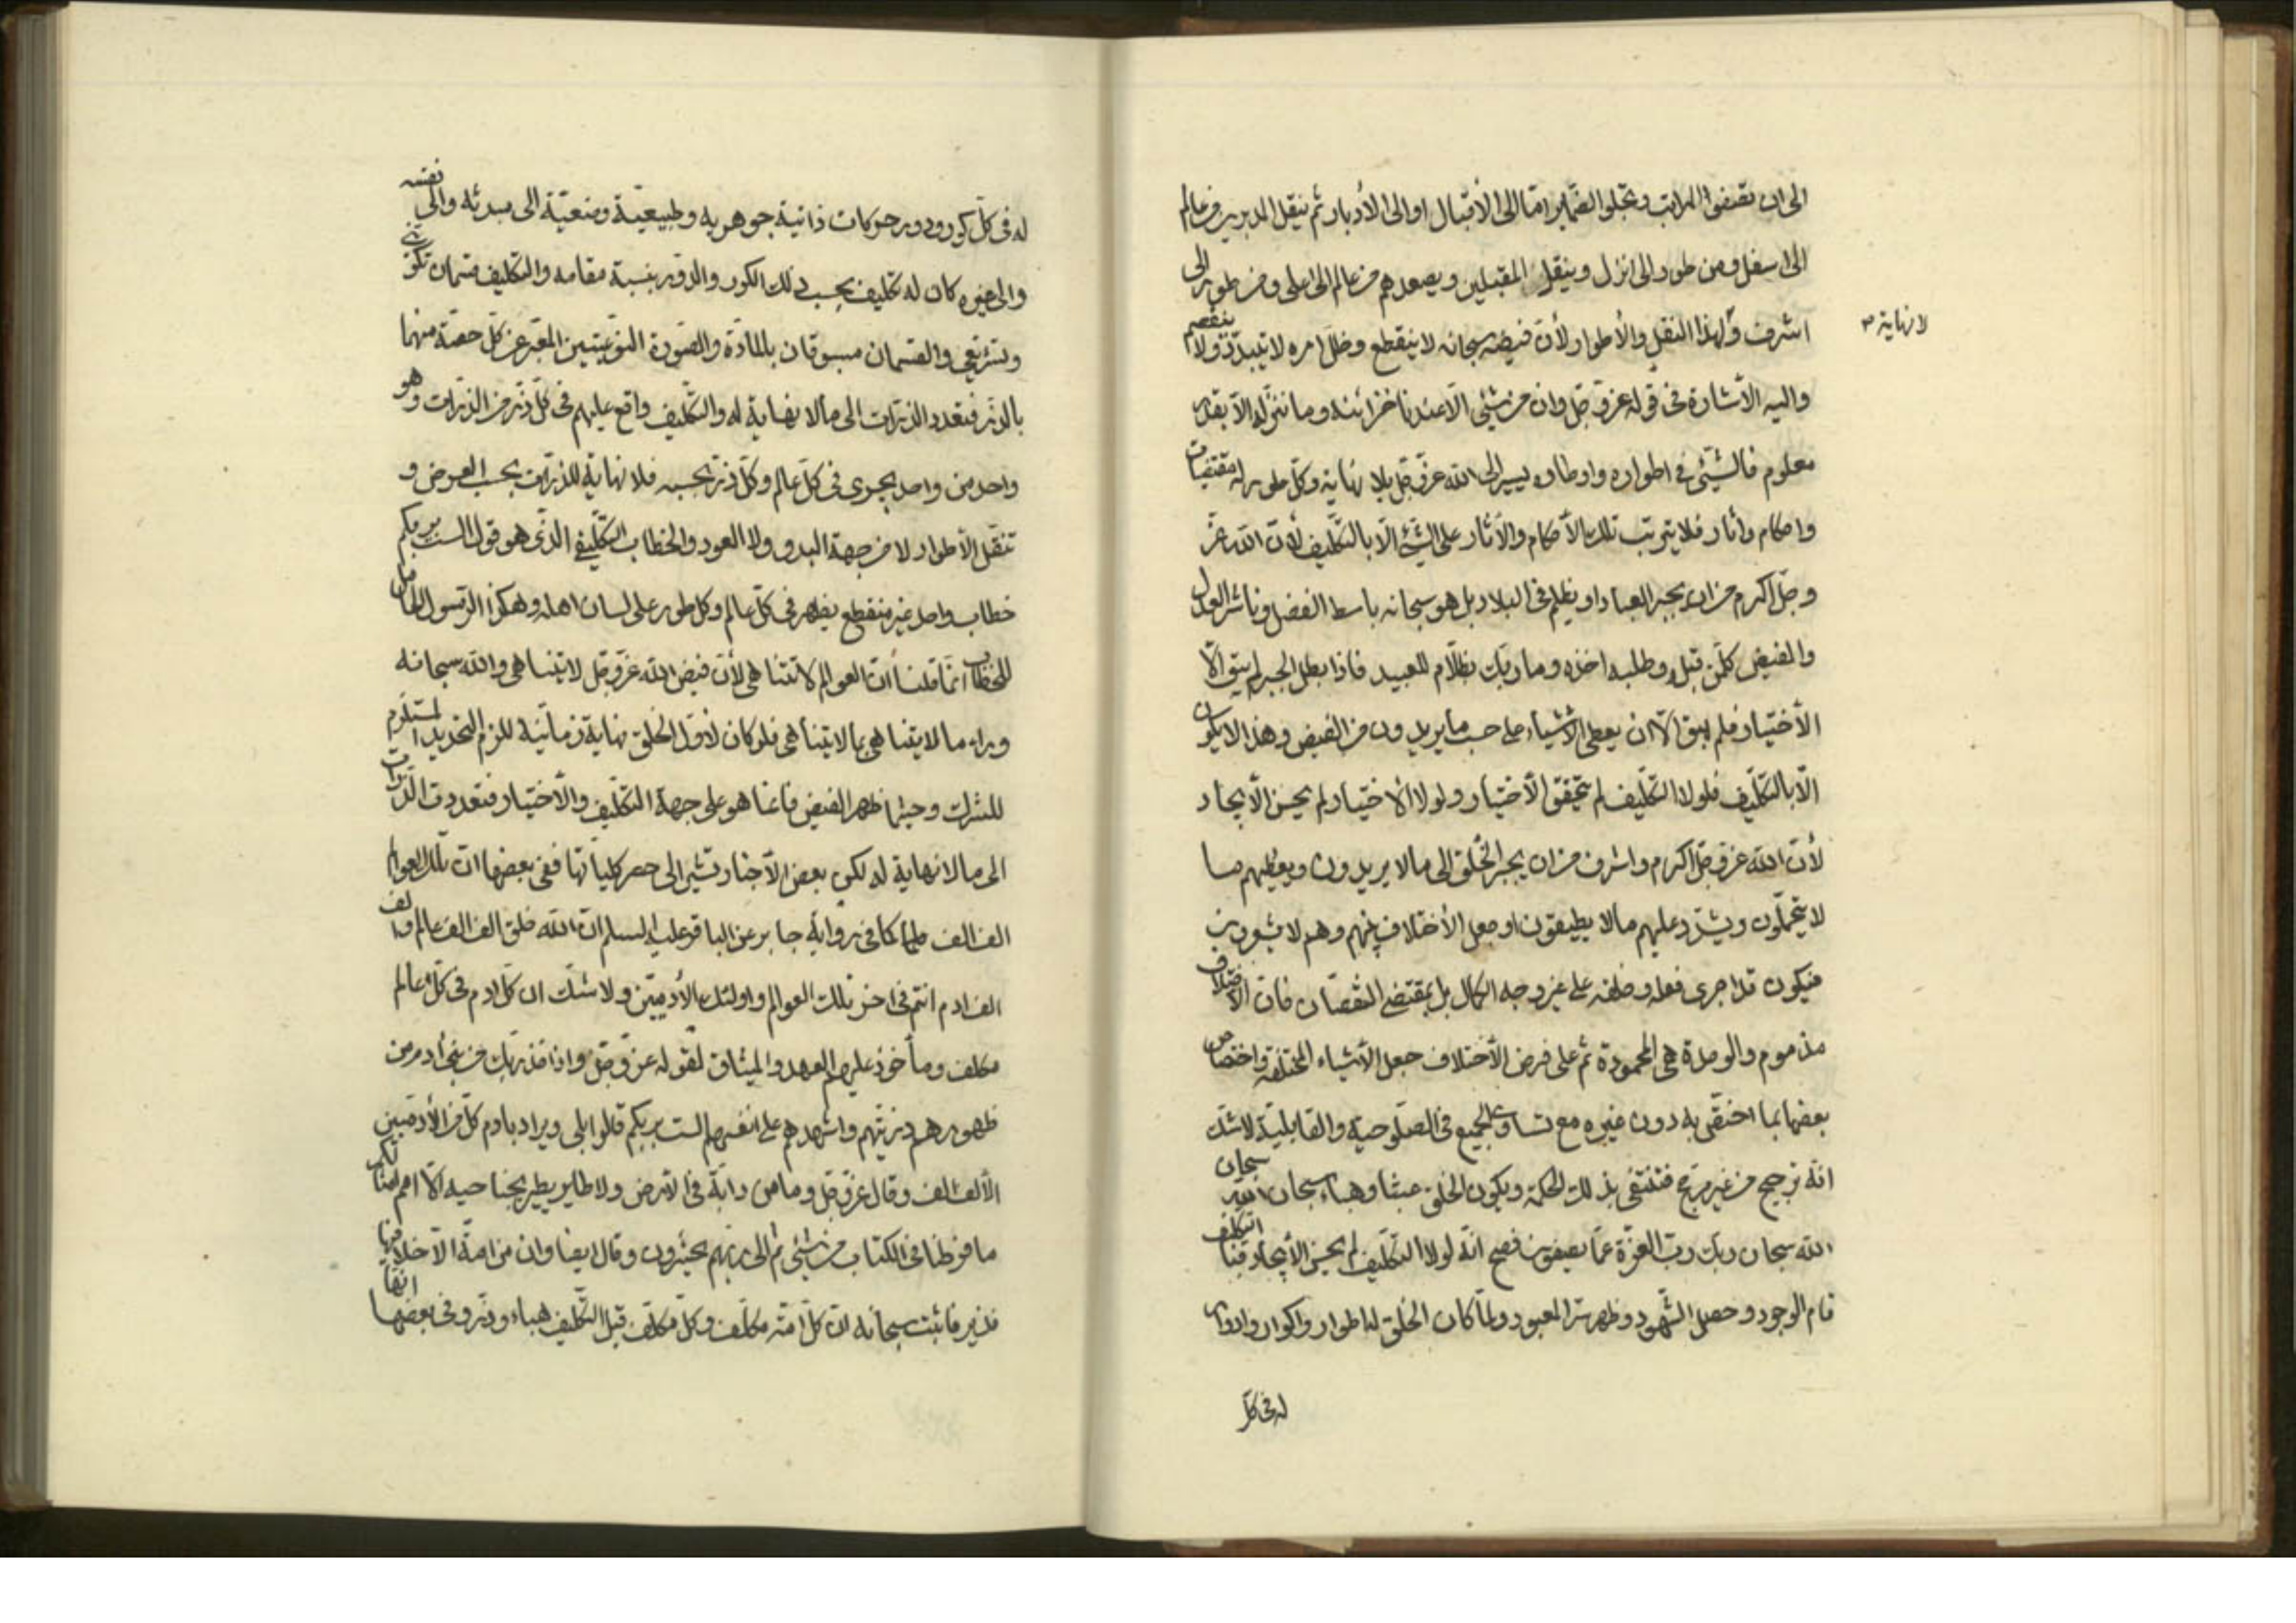 الى ان تقضوا المراتب وتجلوا الضماير امّا الى الأقبال او الى الأدبار ثم ينقل المدبرين من عالم
الى اسفل ومن طور الى انزل وينقل المقبلين ويصعدهم من عالم الى اعلى ومن طور الى
اشرف ولهذا النقل والأطوار لأن فيضه سبحانه لا ينقطع وظل امره لا يتبدد ولا ينفصم
لا نهاية
واليه الأشارة فى قوله عز وجل وان من شئى الّا عندنا خزائنه وما ننزله الّا بقدر
معلوم فالشيئى فى اطواره واوطاره يسير الى الله عز وجل بلا نهاية وكل طور له مقتضيات
واحكام وآثار فلا يترتب تلك الأحكام والآثار على الشئ الّا بالتكليف لأن الله عز
وجل اكرم من ان يجبر العباد او يظلم فى البلاد بل هو سبحانه باسط الفضل وناشر العدل
والفيض كلّ من قبل وطلبه اخذه وما ربك بظلّام للعبيد فاذا بطل الجبر لم يبق الّا
الأختيار فلم يبق الّا ان يعطى الأشياء على حسب ما يريدون من الفيض وهذا لا يكون
الّا بالتكليف فلولا التكليف لم يتحقق الأختيار ولولا الأختيار لم يحسن الأيجاد
لأن الله عز وجل اكرم واشرف من ان يجبر الخلق الى ما لا يريدون ويعطيهم ما
لا يتحملون ويشدّد عليهم ما لا يطيقون او جعل الأختلاف بينهم وهم لا يشعرون
فيكون قد اجرى فعله وخلقه على غير وجه الكمال بل بمقتضى النقصان فان الأختلاف
مذموم والوحدة هى المحمودة ثم على فرض الأختلاف جعل الأشياء المختلفة واختصاص
بعضها بما اختصّ به دون غيره مع تساوى الجميع فى الصلوحية والقابلية لاشك
انّه ترجيح من غير مرجح فتنتفى بذلك الحكمة ويكون الخلق عبثا وهباء سبحان الله سبحان
الله سبحان ربك ربّ العزّة عمّا يصفون فصح انّه لولا التكليف لم يحسن الأيجاد فبالتكليف
قام الوجود وحصل الشّهود وظهر سر المعبود ولمّا كان الخلق له اطوار واكوار وادوار
له فى كل
له فى كلّ كور ودور حركات ذاتية جوهريه وطبيعيّة وضعيّة الى مبدئه والى نفسه
والى غيره كان له تكليف بحسب ذلك الكور والدّور بنسبة مقامه والتكليف قسمان تكوينى
وتشريعى والقسمان مسبوقان بالمادّة والصّورة النوعيتين المعبّر عن كلّ حصّة منهما
بالذر فتعدد الذرّات الى ما لا نهاية له والتكليف واقع عليهم فى كلّ ذر من الذرات وهو
واحد من واحد يجرى فى كلّ عالم وكلّ ذر بحسبه فلا نهاية للذرّات بحسب العرض و
تنقّل الأطوار لا من جهة البدو ولا العود والخطاب التكليفى الذى هو قول الست بربكم
خطاب واحد غير منقطع يظهر فى كلّ عالم وكل طور على لسان اهله وهكذا الرسول الحامل
للخطاب انّما قلنا أنّ العوالم لا تتناهى لأن فيض الله عز وجل لا يتناهى والله سبحانه
وراء ما لا يتناهى بما لا يتناهى فلو كان لأوّل الخلق نهاية زمانّية للزم التحديد المستلزم
للشرك وحيثما ظهر الفيض فانما هو على جهة التكليف والأختيار فتعددت الذرّات
الى ما لا نهاية له لكن بعض الأخبار تشير الى حصر كلياتها ففى بعضها ان تلك العوالم
الف الف كما فى رواية جابر عن الباقر عليه السلم انّ الله خلق الف الف عالم والف
الف ادم انتم فى اخر تلك العوالم واولئك الأدميّين ولا شك ان كلّ ادم فى كلّ عالم
مكلف ومأخوذ عليهم العهد والميثاق لقوله عز وجل واذ اخذ ربك من بنى أدم من
ظهورهم ذريتهم واشهدهم على انفسهم الست بربكم قالوا بلى ويراد بادم كلّ من الأدميين
الألف الف وقال عز وجل وما من دابّة فى الأرض ولا طاير يطير بجناحيه الّا امم امثالكم
ما فرطنا فى الكتاب من شئى ثم الى ربهم يحشرون وقال ايضا وان من امة الّا خلا فيها
نذير فاثبت سبحانه انّ كلّ امّة مكلّف وكلّ مكلّف قبل التكليف هباء وذر وفى بعضها انها